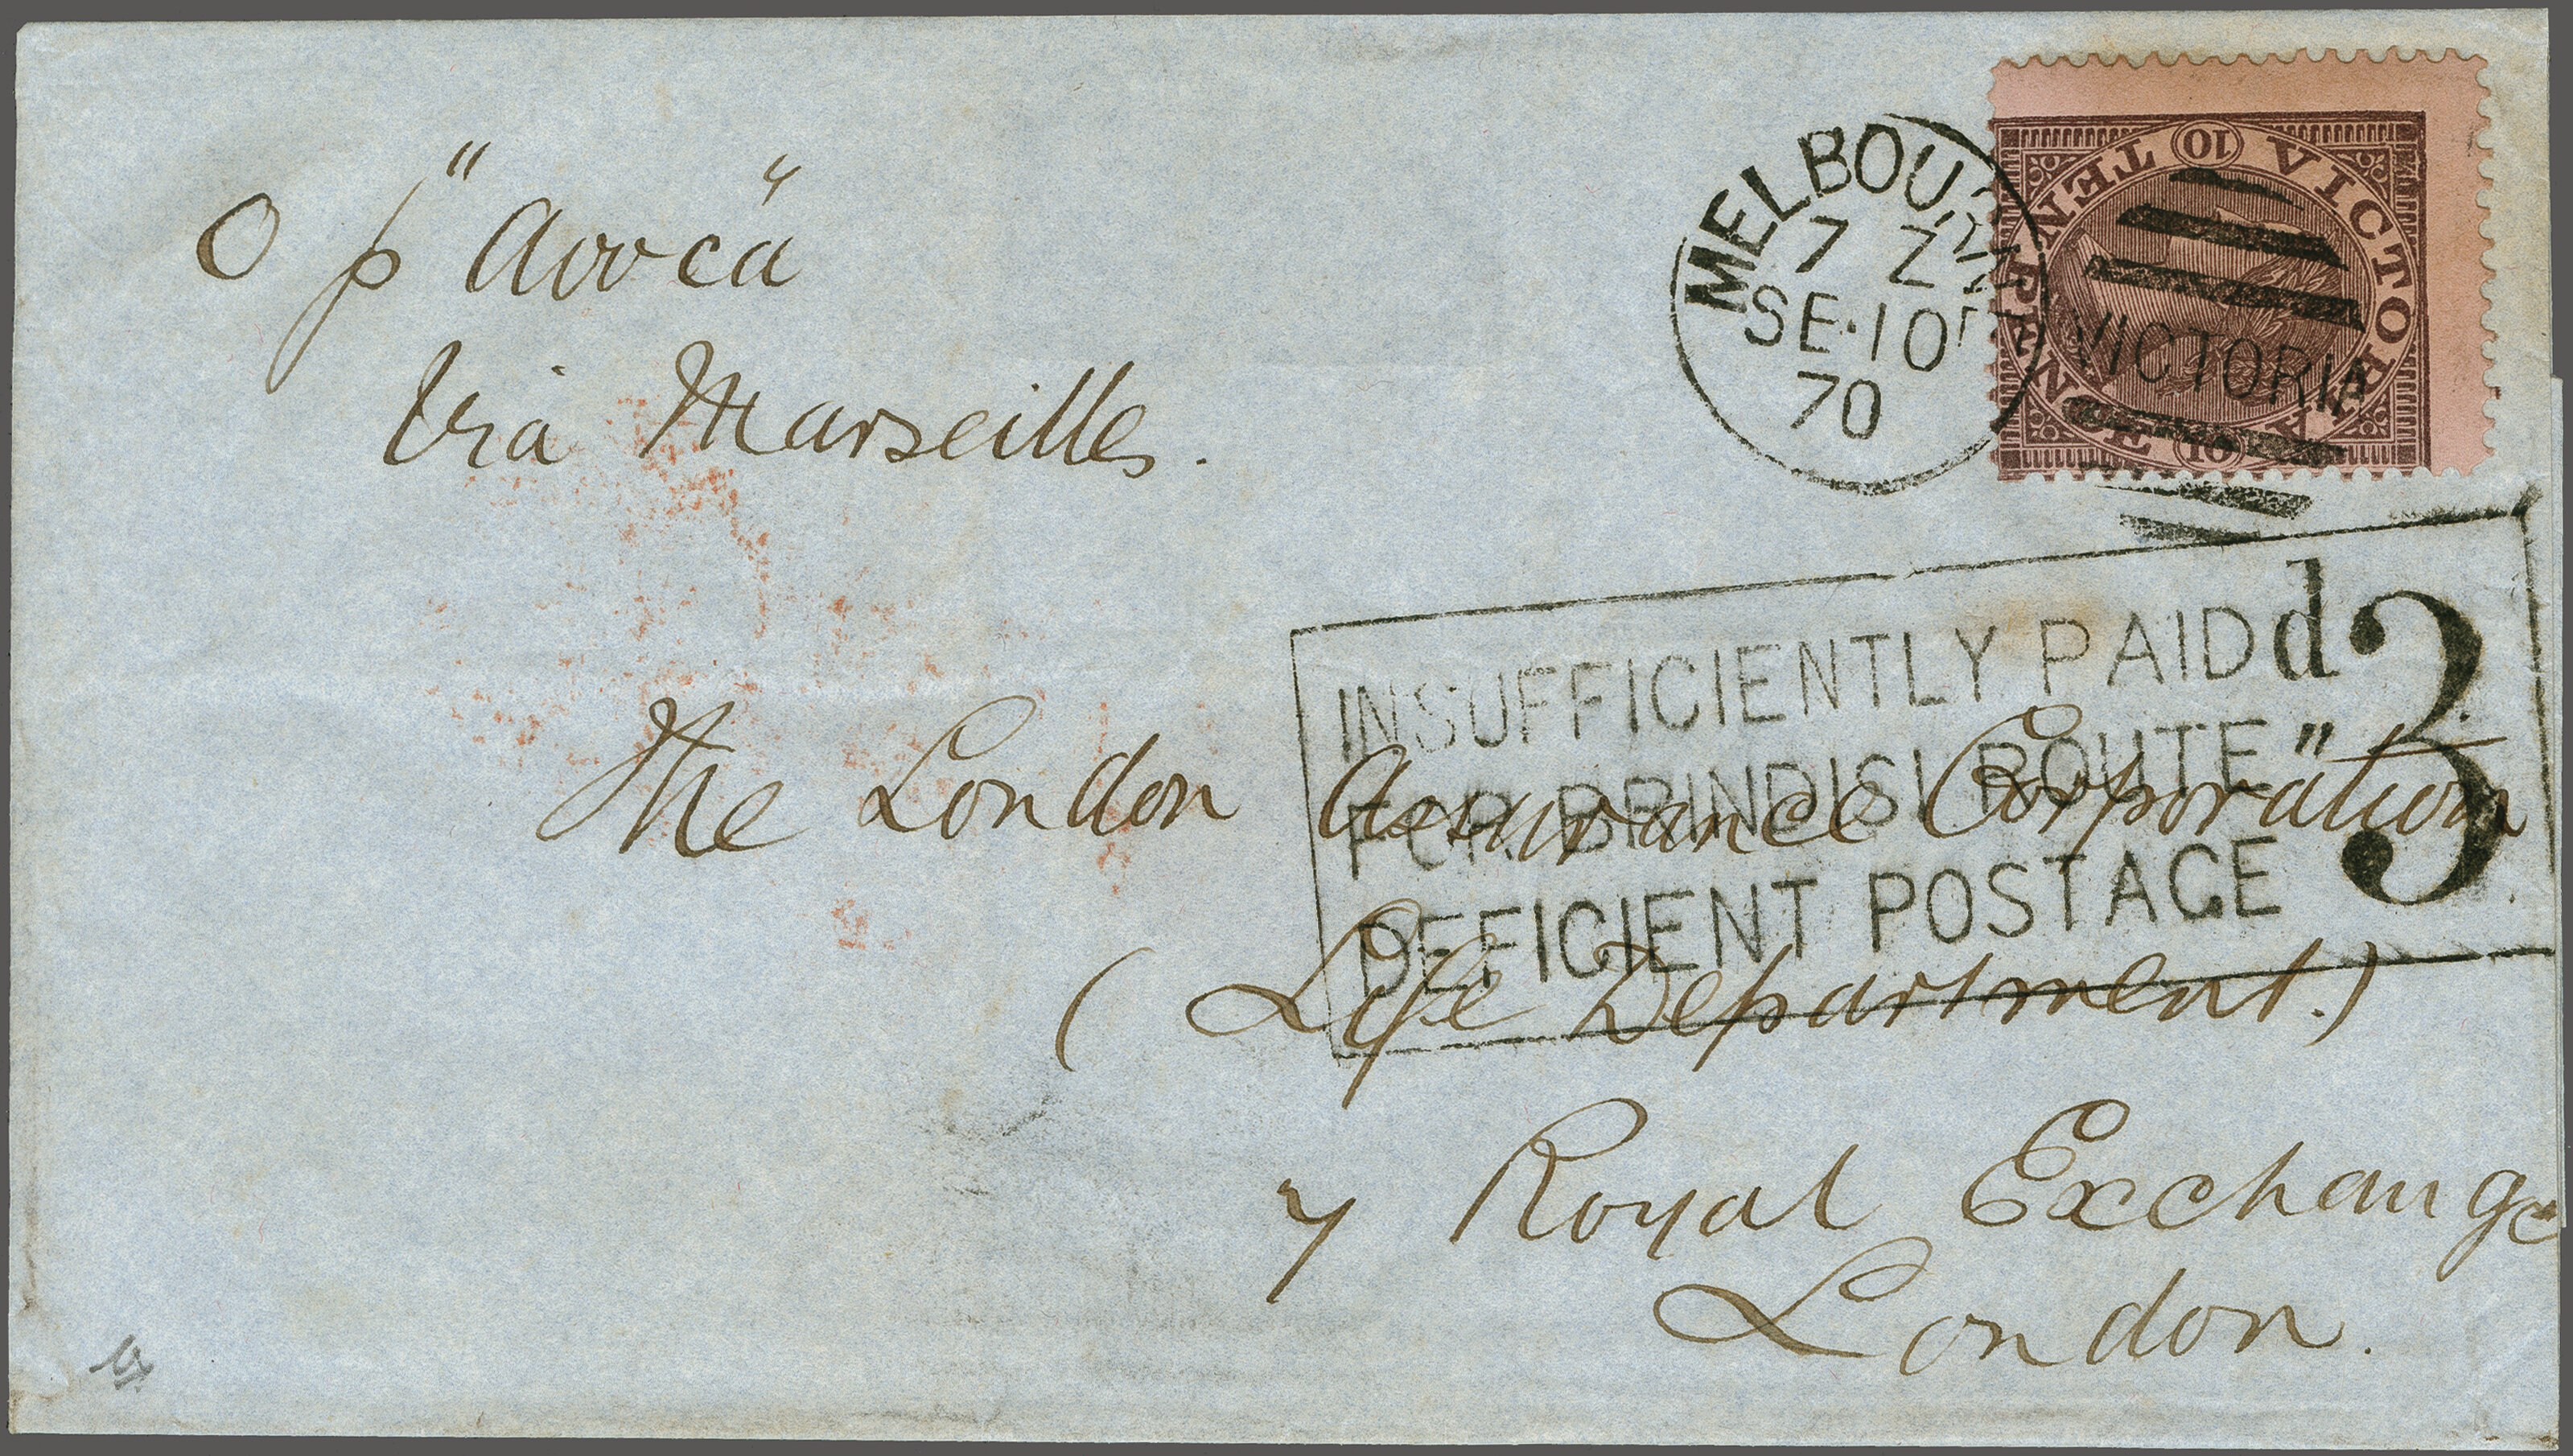 O p "Avoca"
Via Marseilles.
MELBOURNE
7 Z
SE·10
70
VICTORIA
VICTORIA
TEN PENCE
10
10
INSUFFICIENTLY PAID
FOR BRINDISI ROUTE "
DEFICIENT POSTAGE
d
3
The London Assurance Corporation
(Life Department.)
7 Royal Exchange
London.